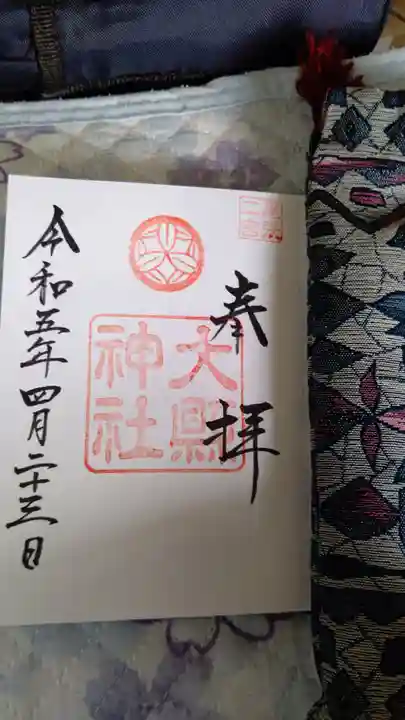 奉拝
大縣
神社
令和五年四月二十三日